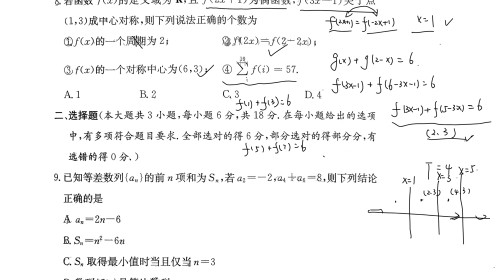 (1,3)成中心对称,则下列说法正确的个数为
f(2x+1)=f(-2x+1) x=1
①f(x)的一个周期为2; ②f(2x)=f(2-2x);
③f(x)的一个对称中心为(6,3); ④ ∑ f(i)=57.
g(x)+g(2-x)=6
f(3x-1)+f(6-3x-1)=6
A. 1 B. 2 C. 3 D. 4
f(1)+f(3)=6
f(3x-1)+f(5-3x)=6
(2,3)
二、选择题(本大题共 3 小题,每小题 6 分,共 18 分. 在每小题给出的选项
中,有多项符合题目要求. 全部选对的得 6 分,部分选对的得部分分,有
选错的得 0 分.)
f(5)+f(7)=6
T=4
x=1 x=3 x=5
(2.3) (4.3)
9. 已知等差数列{aₙ}的前 n 项和为 Sₙ,若 a₂=-2,a₄+a₅=8,则下列结论
正确的是
A. aₙ=2n-6
B. Sₙ=n²-6n
C. Sₙ 取得最小值时当且仅当 n=3